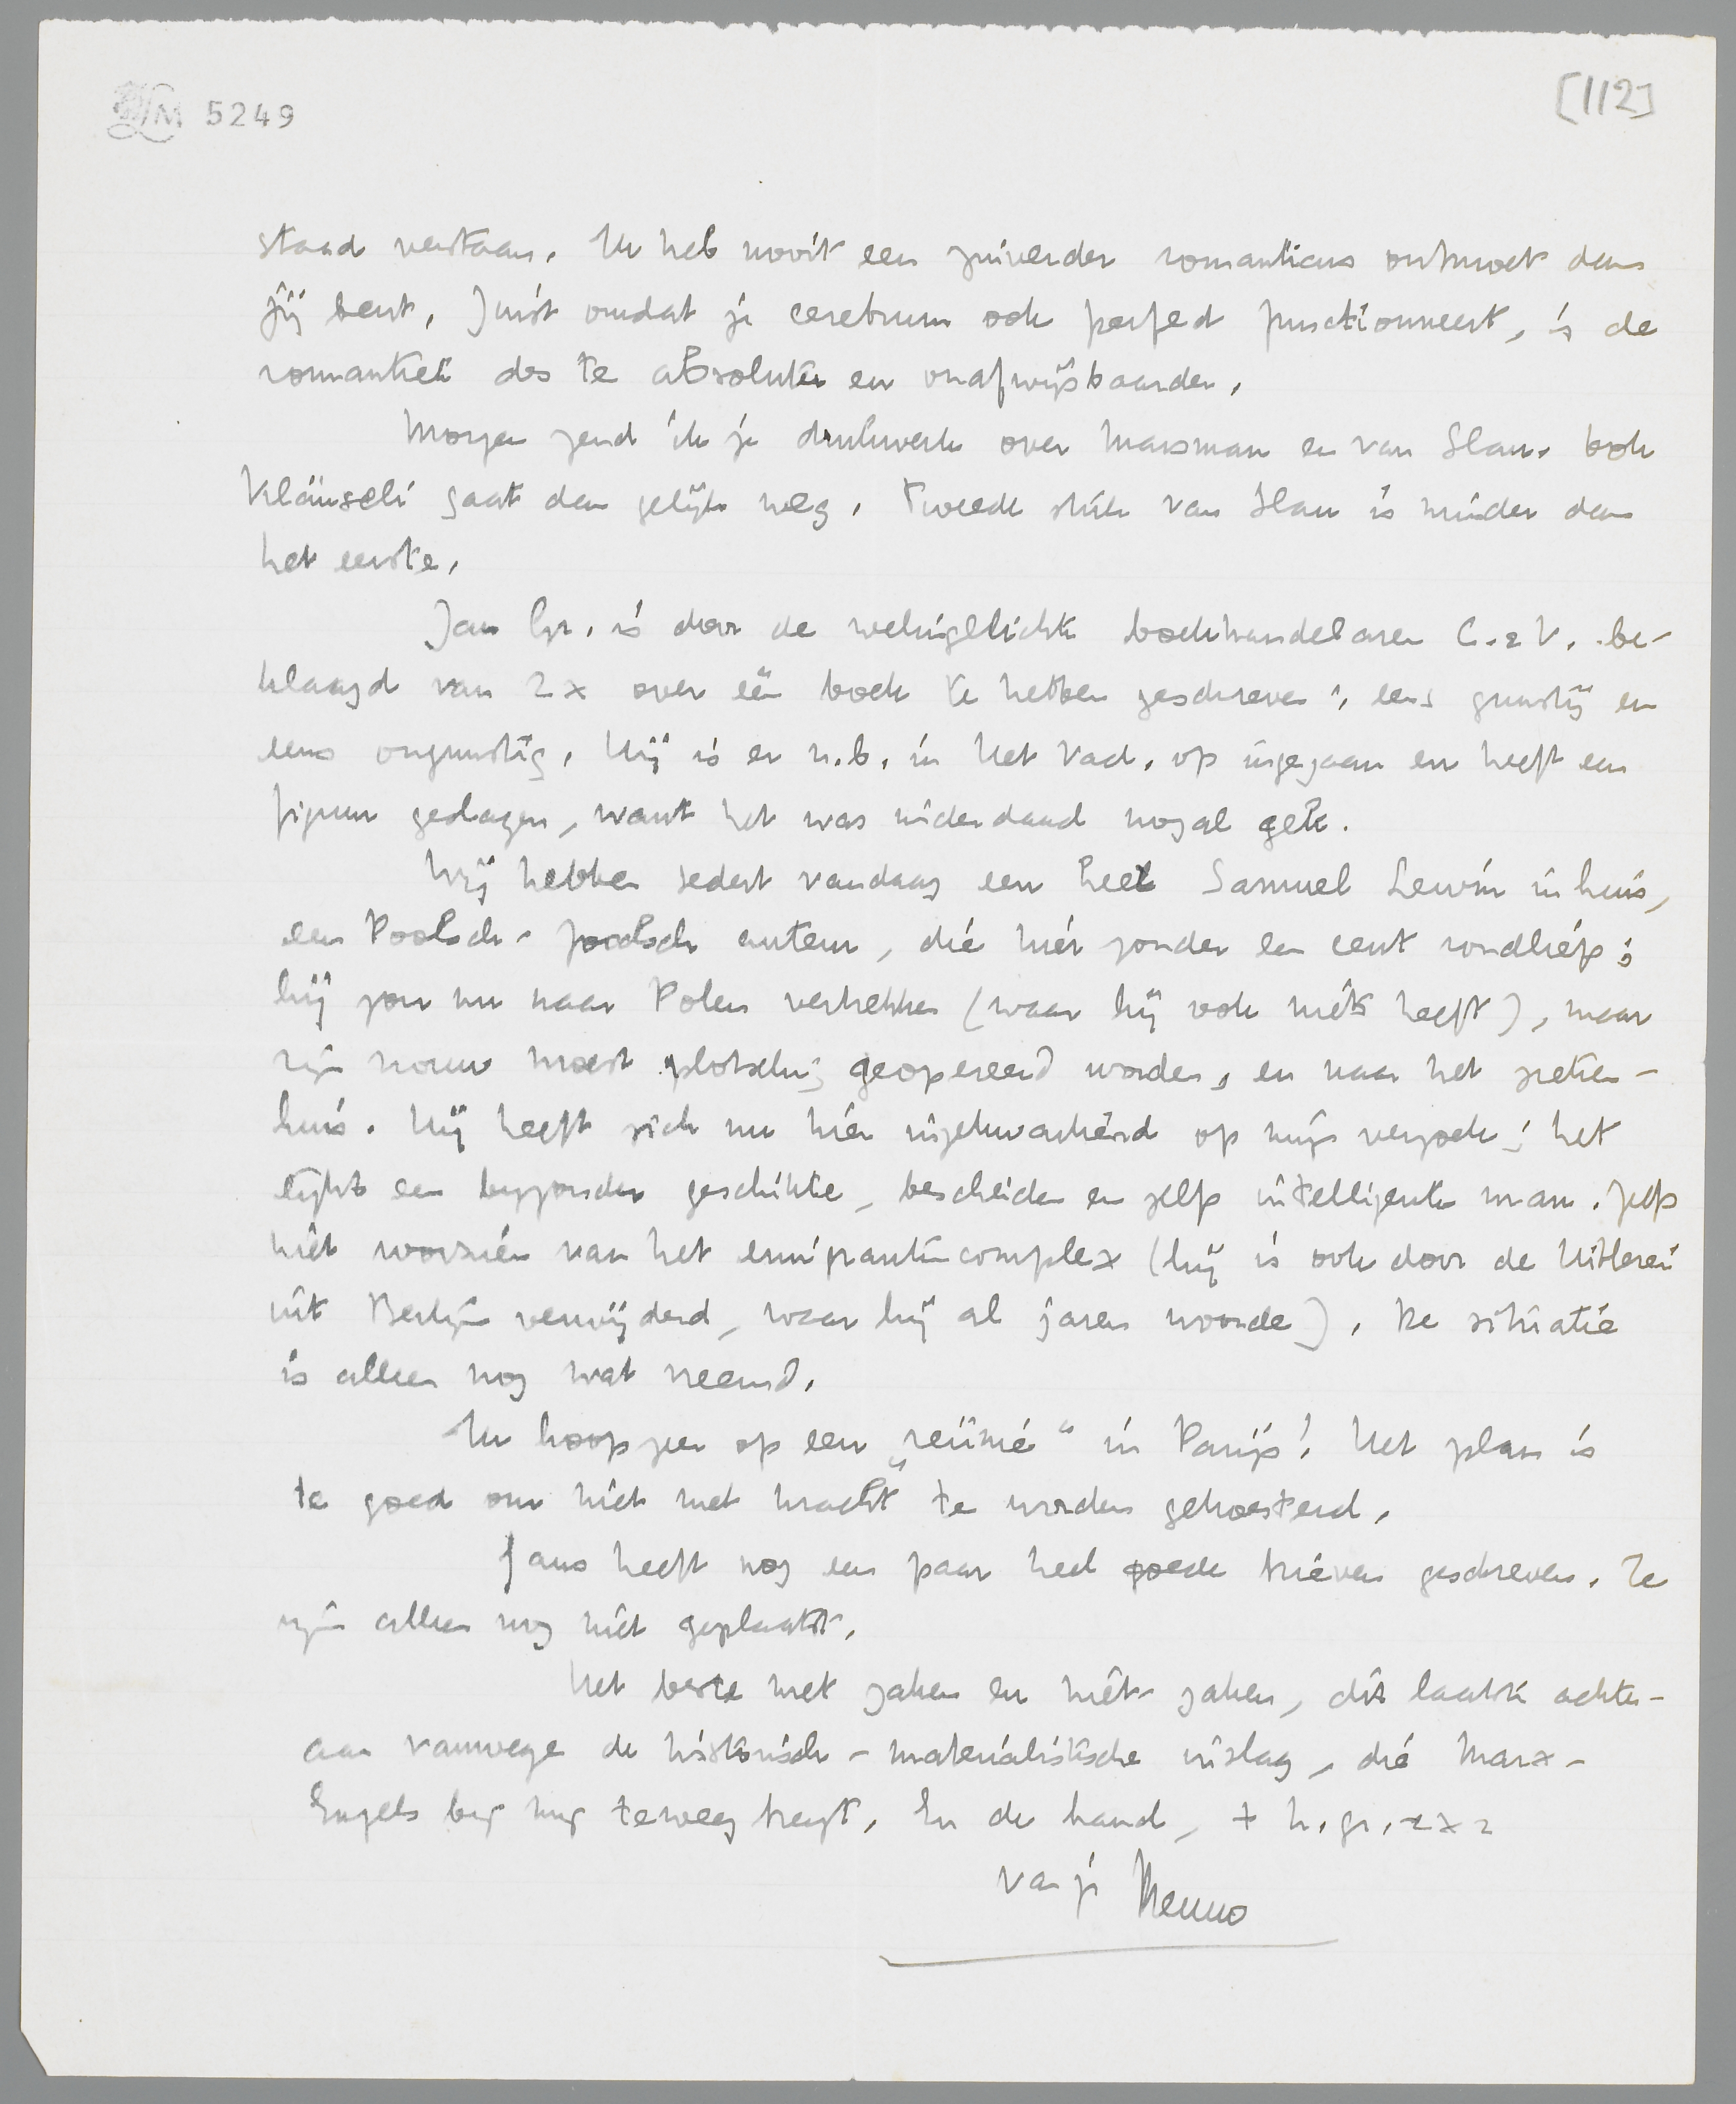 LM 5249
[112]
staand verstaan. Ik heb nooit een zuiverder romanticus ontmoet dan
jij bent. Juist omdat je cerebrum ook perfect functionneert, is de
romantiek des te absoluter en onafwijsbaarder.
Morgen zend ik je drukwerk over Marsman en van Slau. boek
Kläuseli gaat dan gelijk weg. Tweede stuk van Slau is minder dan
het eerste.
Jan Gr. is door de welingelichte boekhandelaren C. e V. be-
klaagd van 2x over één boek te hebben geschreven, eens gunstig en
eens ongunstig. Hij is er n.b. in Het Vad. op ingegaan en heeft een
figuur geslagen, want het was inderdaad nogal gek.
Wij hebben sedert vandaag een heer Samuel Lewin in huis,
een Poolsch-Joodsch auteur, die hier zonder een cent rondliep;
hij zou nu naar Polen vertrekken (waar hij ook niets heeft), maar
zijn vrouw moest plotseling geopereerd worden, en naar het zieken-
huis. Hij heeft zich nu hier ingekwartierd op mijn verzoek; het
lijkt een bijzonder geschikte, bescheiden en zelfs intelligente man. Zelfs
niet voorzien van het emigrantencomplex (hij is ook door de Hitlerei
uit Berlijn verwijderd, waar hij al jaren woonde). De situatie
is alleen nog wat vreemd.
Ik hoop zeer op een „reünie" in Parijs! Het plan is
te goed om niet met kracht te worden gekoesterd.
Jans heeft nog een paar heel goede brieven geschreven. Ze
zijn alleen nog niet geplaatst.
Het beste met zaken en niet-zaken, dit laatste achter-
aan vanwege de historisch-materialistische uitslag, die Marx-
Engels bij mij teweeg bracht. En de hand, + h. gr. 2 x 2
van je Menno